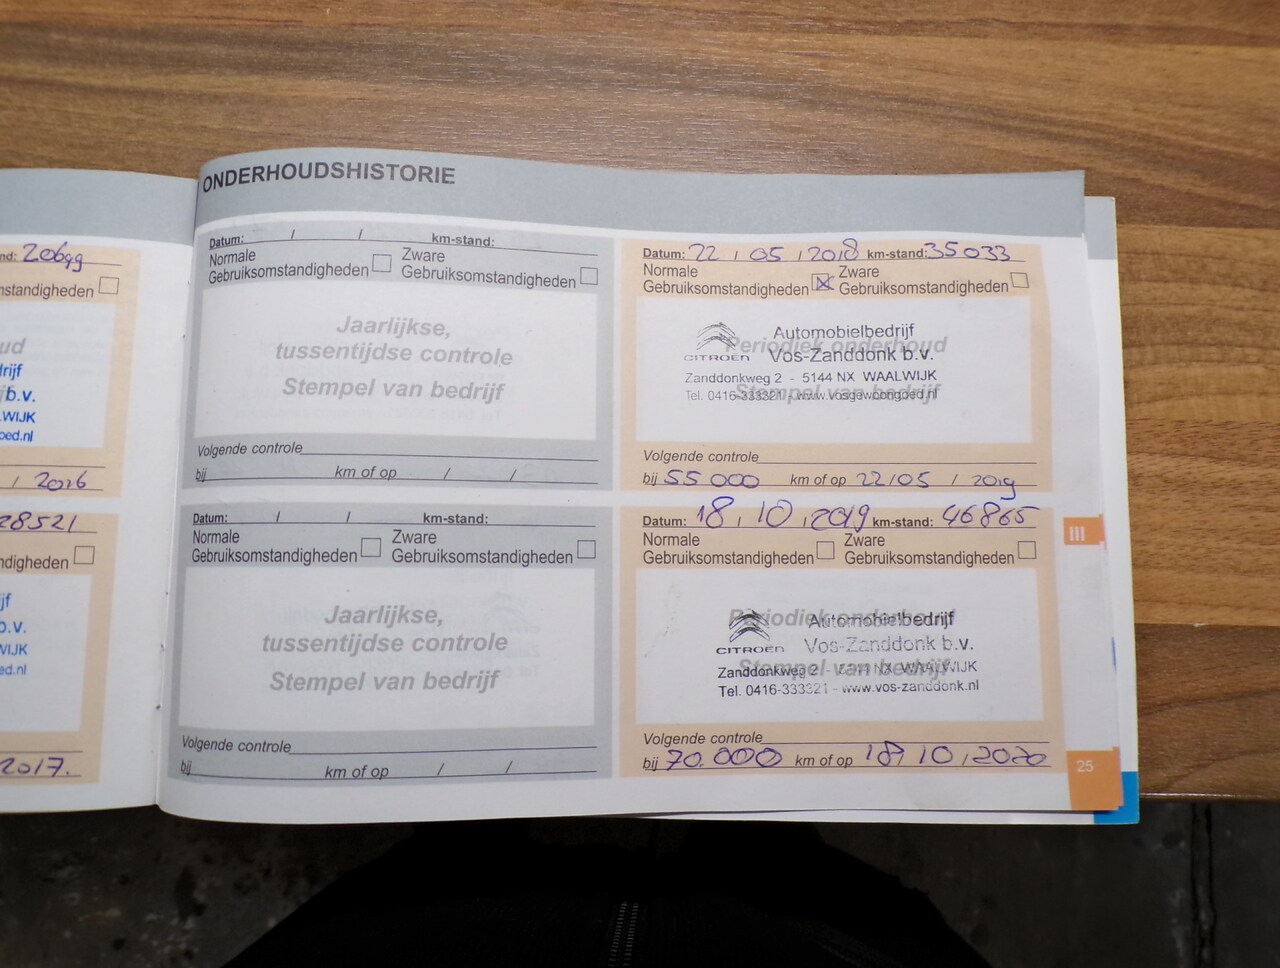 nd: 20699
nstandigheden
oud
rijf
b.v.
WIJK
oed.nl
/ 2016
28521
ndigheden
jf
b.v.
WIJK
ed.nl
2017.
ONDERHOUDSHISTORIE
Datum: / / km-stand:
Normale Zware
Gebruiksomstandigheden Gebruiksomstandigheden
Jaarlijkse,
tussentijdse controle
Stempel van bedrijf
Volgende controle
bij km of op / /
Datum: / / km-stand:
Normale Zware
Gebruiksomstandigheden Gebruiksomstandigheden
Jaarlijkse,
tussentijdse controle
Stempel van bedrijf
Volgende controle
bij km of op / /
Datum: 22 / 05 / 2018 km-stand: 35033
Normale Zware
Gebruiksomstandigheden Gebruiksomstandigheden
Automobielbedrijf
Periodiek onderhoud
CITROËN Vos-Zanddonk b.v.
Zanddonkweg 2 - 5144 NX WAALWIJK
Stempel van bedrijf
Tel. 0416-333321 - www.vosgewoongoed.nl
Volgende controle
bij 55000 km of op 22/05 / 2019
Datum: 18 / 10 / 2019 km-stand: 46865
Normale Zware
Gebruiksomstandigheden Gebruiksomstandigheden
Periodiek onderhoud
Automobielbedrijf
CITROËN Vos-Zanddonk b.v.
Stempel van bedrijf
Zanddonkweg 2 - NX WAALWIJK
Tel. 0416-333321 - www.vos-zanddonk.nl
Volgende controle
bij 70.000 km of op 18/ 10 / 2020
III
25